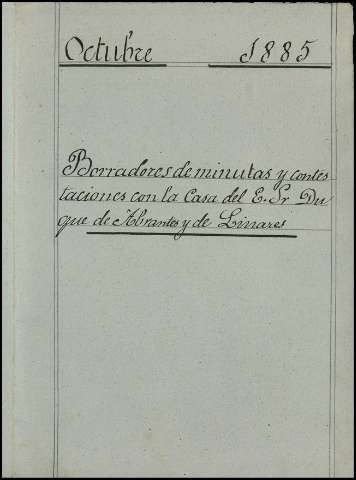 Octubre 1885
Borradores de minutas y contes
taciones con la Casa del E. Sr Du
que de Abrantes y de Linares